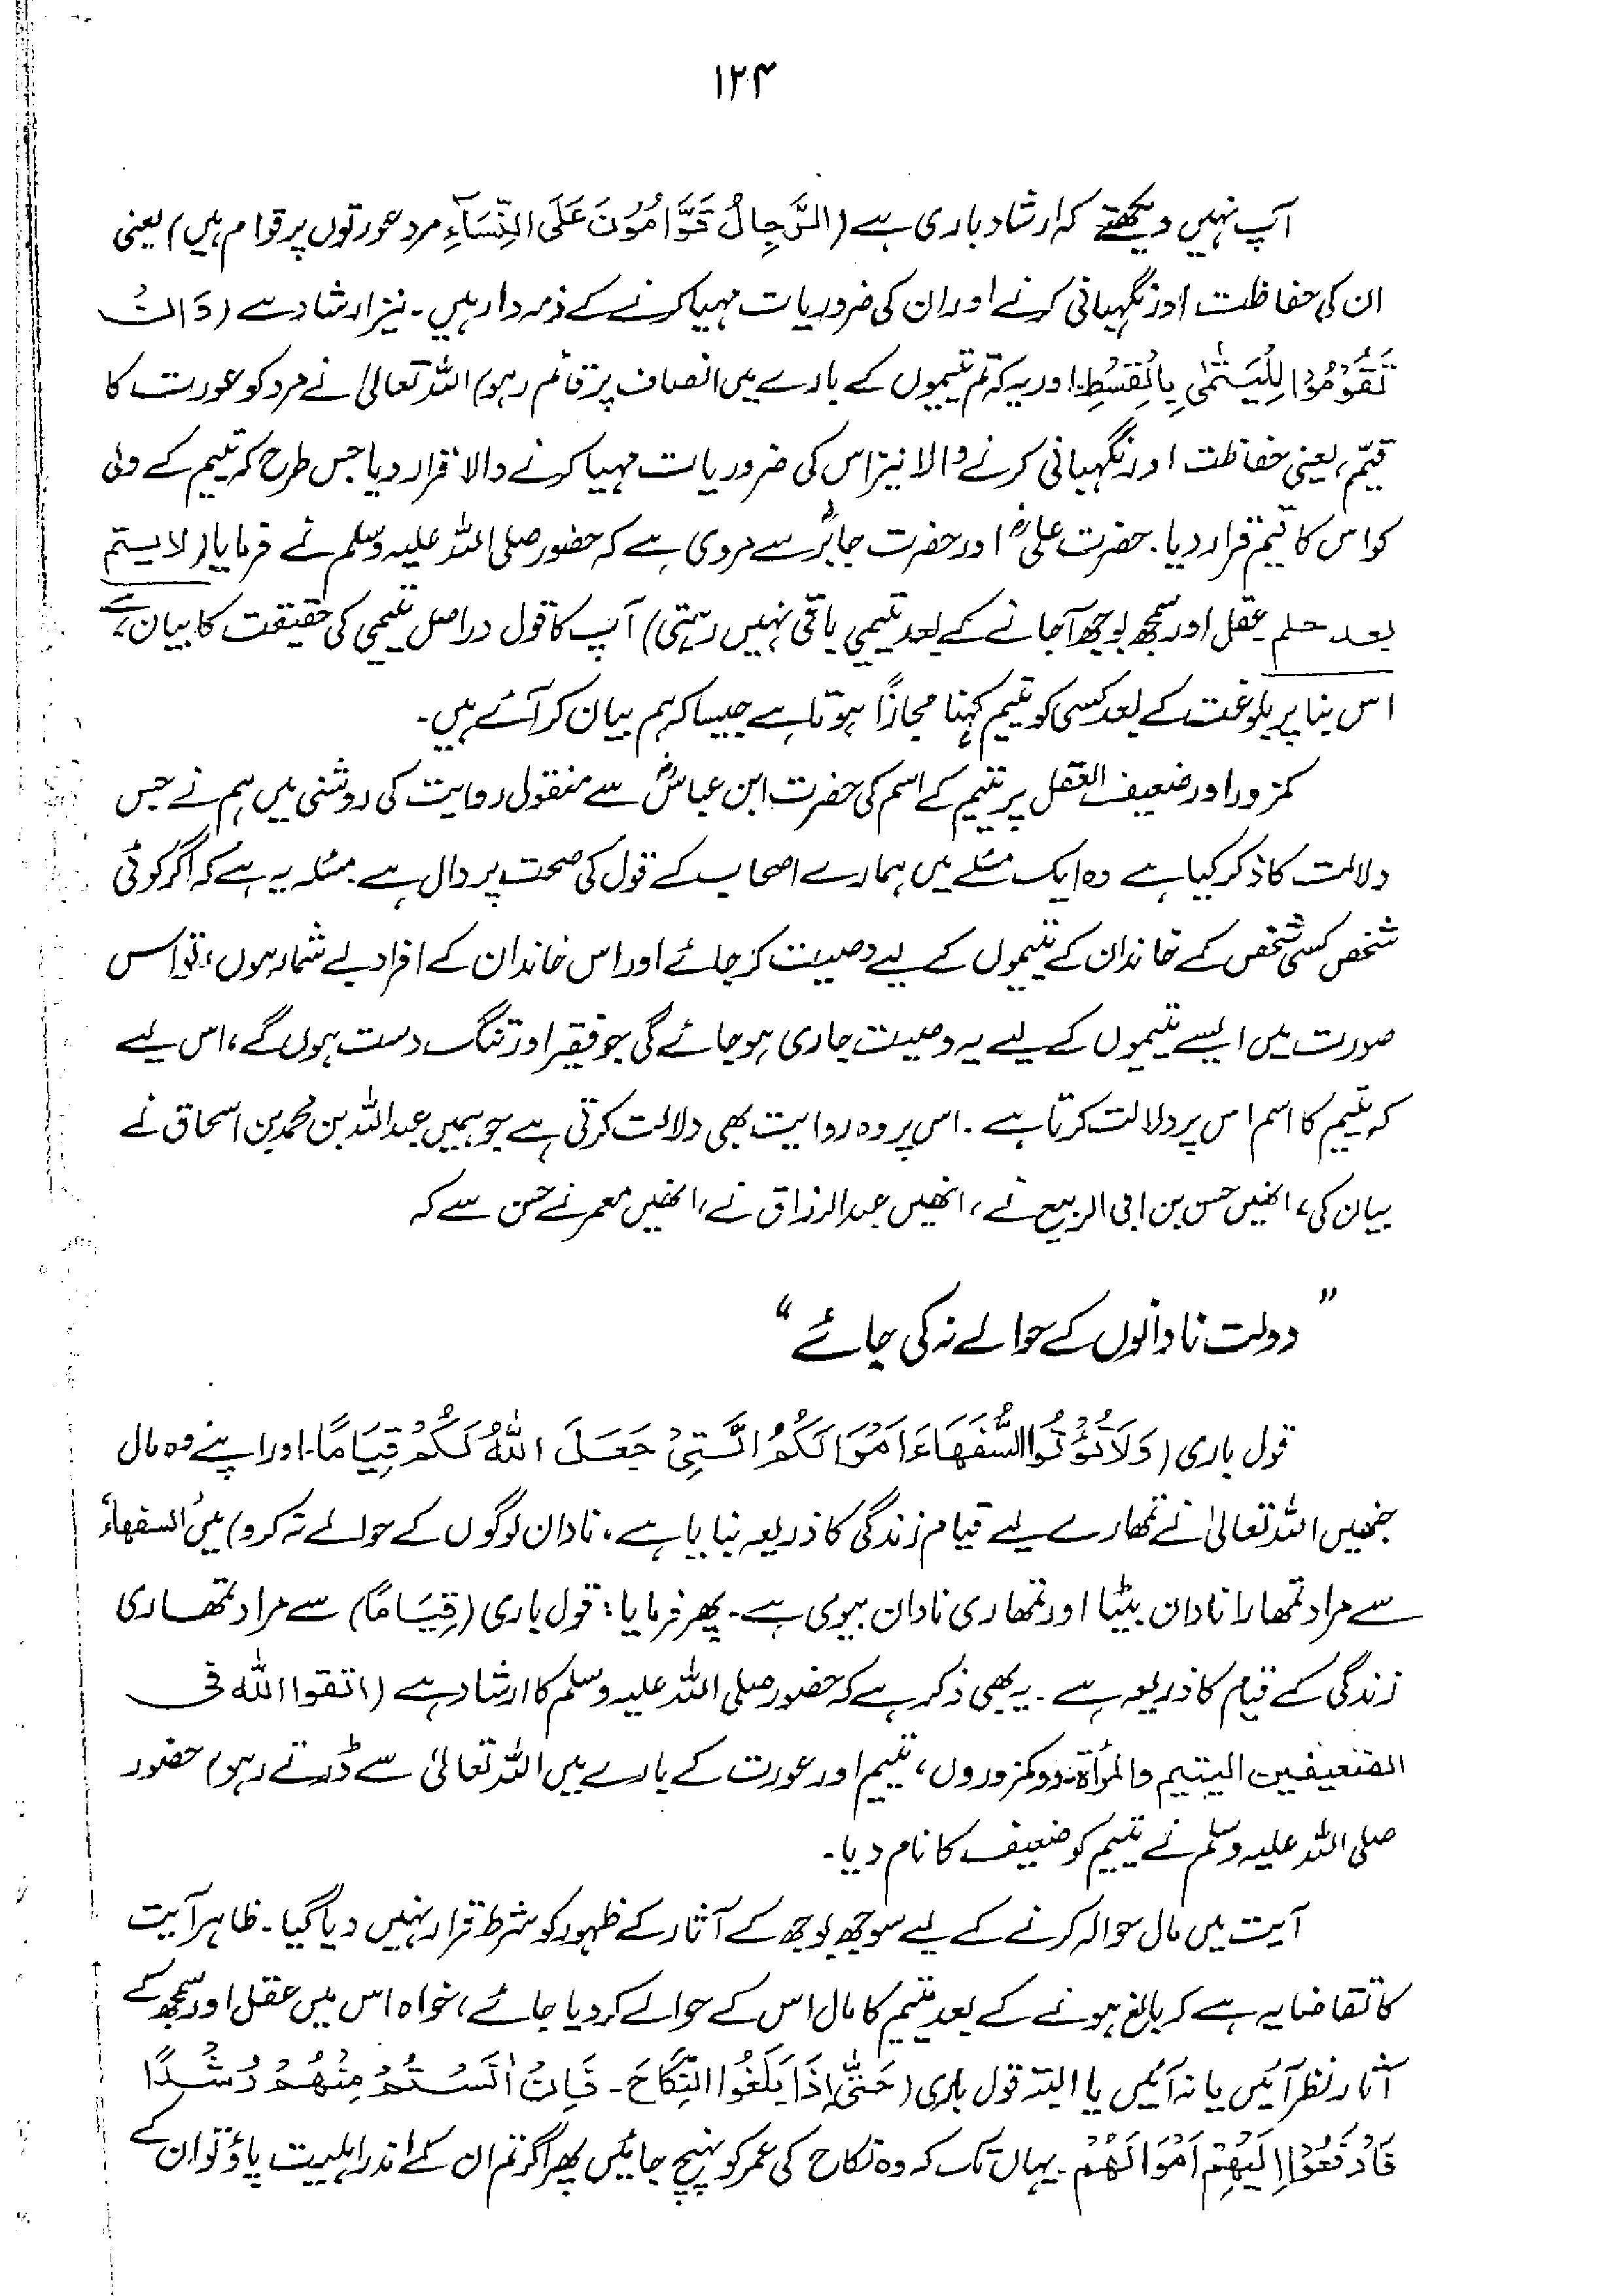 ۱۲۴
آپ نہیں دیکھتے کہ ارشاد باری ہے (اَلرِّجَالُ قَوَّامُوْنَ عَلَی النِّسَآءِ مرد عورتوں پر قوام ہیں) یعنی
ان کی حفاظت اور نگہبانی کرنے اور ان کی ضروریات مہیا کرنے کے ذمہ دار ہیں۔ نیز ارشاد ہے (وَاَنْ
تَقُوْمُوْا لِلْیَتٰمٰی بِالْقِسْطِ۔ اور یہ کہ تم یتیموں کے بارے میں انصاف پر قائم رہو) اللہ تعالیٰ نے مرد کو عورت کا
قیّم، یعنی حفاظت اور نگہبانی کرنے والا نیز اس کی ضروریات مہیا کرنے والا قرار دیا جس طرح کہ یتیم کے ولی
کو اس کا قیّم قرار دیا۔ حضرت علیؓ اور حضرت جابرؓ سے مروی ہے کہ حضور صلی اللہ علیہ وسلم نے فرمایا (لا یتم
بعد حلم عقل اور سمجھ بوجھ آجانے کے بعد یتیمی باقی نہیں رہتی) آپ کا قول دراصل یتیمی کی حقیقت کا بیان ہے،
اس بنا پر بلوغت کے بعد کسی کو یتیم کہنا مجازاً ہوتا ہے جیسا کہ ہم بیان کر آئے ہیں۔
کمزور اور ضعیف العقل پر یتیم کے اسم کی حضرت ابن عباسؓ سے منقول روایت کی روشنی میں ہم نے جس
دلالت کا ذکر کیا ہے وہ ایک مسئلے میں ہمارے اصحاب کے قول کی صحت پر دال ہے۔ مسئلہ یہ ہے کہ اگر کوئی
شخص کسی شخص کے خاندان کے یتیموں کے لیے وصیت کر جائے اور اس خاندان کے افراد بے شمار ہوں، تو اس
صورت میں ایسے یتیموں کے لیے یہ وصیت جاری ہو جائے گی جو فقیر اور تنگ دست ہوں گے، اس لیے
کہ یتیم کا اسم اس پر دلالت کرتا ہے۔ اس پر وہ روایت بھی دلالت کرتی ہے جو ہمیں عبداللہ بن محمد بن اسحاق نے
بیان کی، انھیں حسن بن ابی الربیع نے، انھیں عبدالرزاق نے، انھیں معمر نے حسن سے کہ
"دولت نادانوں کے حوالے نہ کی جائے"
قول باری (وَلَا تُؤْتُوا السُّفَهَاءَ اَمْوَالَكُمُ الَّتِیْ جَعَلَ اللّٰهُ لَكُمْ قِیَامًا۔ اور اپنے وہ مال
جنھیں اللہ تعالیٰ نے تمھارے لیے قیام زندگی کا ذریعہ بنایا ہے، نادان لوگوں کے حوالے نہ کرو) میں السفہاء
سے مراد تمھارا نادان بیٹا اور تمھاری نادان بیوی ہے۔ پھر فرمایا: قول باری (قِیَامًا) سے مراد تمھاری
زندگی کے قیام کا ذریعہ ہے۔ یہ بھی ذکر ہے کہ حضور صلی اللہ علیہ وسلم کا ارشاد ہے (اتقوا اللہ فی
الضعیفین الیتیم والمرأۃ۔ دو کمزوروں، یتیم اور عورت کے بارے میں اللہ تعالیٰ سے ڈرتے رہو) حضور
صلی اللہ علیہ وسلم نے یتیم کو ضعیف کا نام دیا۔
آیت میں مال حوالہ کرنے کے لیے سوجھ بوجھ کے آثار کے ظہور کو شرط قرار نہیں دیا گیا۔ ظاہر آیت
کا تقاضا یہ ہے کہ بالغ ہونے کے بعد یتیم کا مال اس کے حوالے کر دیا جائے، خواہ اس میں عقل اور سمجھ کے
آثار نظر آئیں یا نہ آئیں یا البتہ قول باری (حَتّٰی اِذَا بَلَغُوا النِّکَاحَ۔ فَاِنْ اٰنَسْتُمْ مِنْهُمْ رُشْدًا
فَادْفَعُوْا اِلَیْهِمْ اَمْوَالَهُمْ۔ یہاں تک کہ وہ نکاح کی عمر کو پہنچ جائیں پھر اگر تم ان کے اندر اہلیت پاؤ تو ان کے